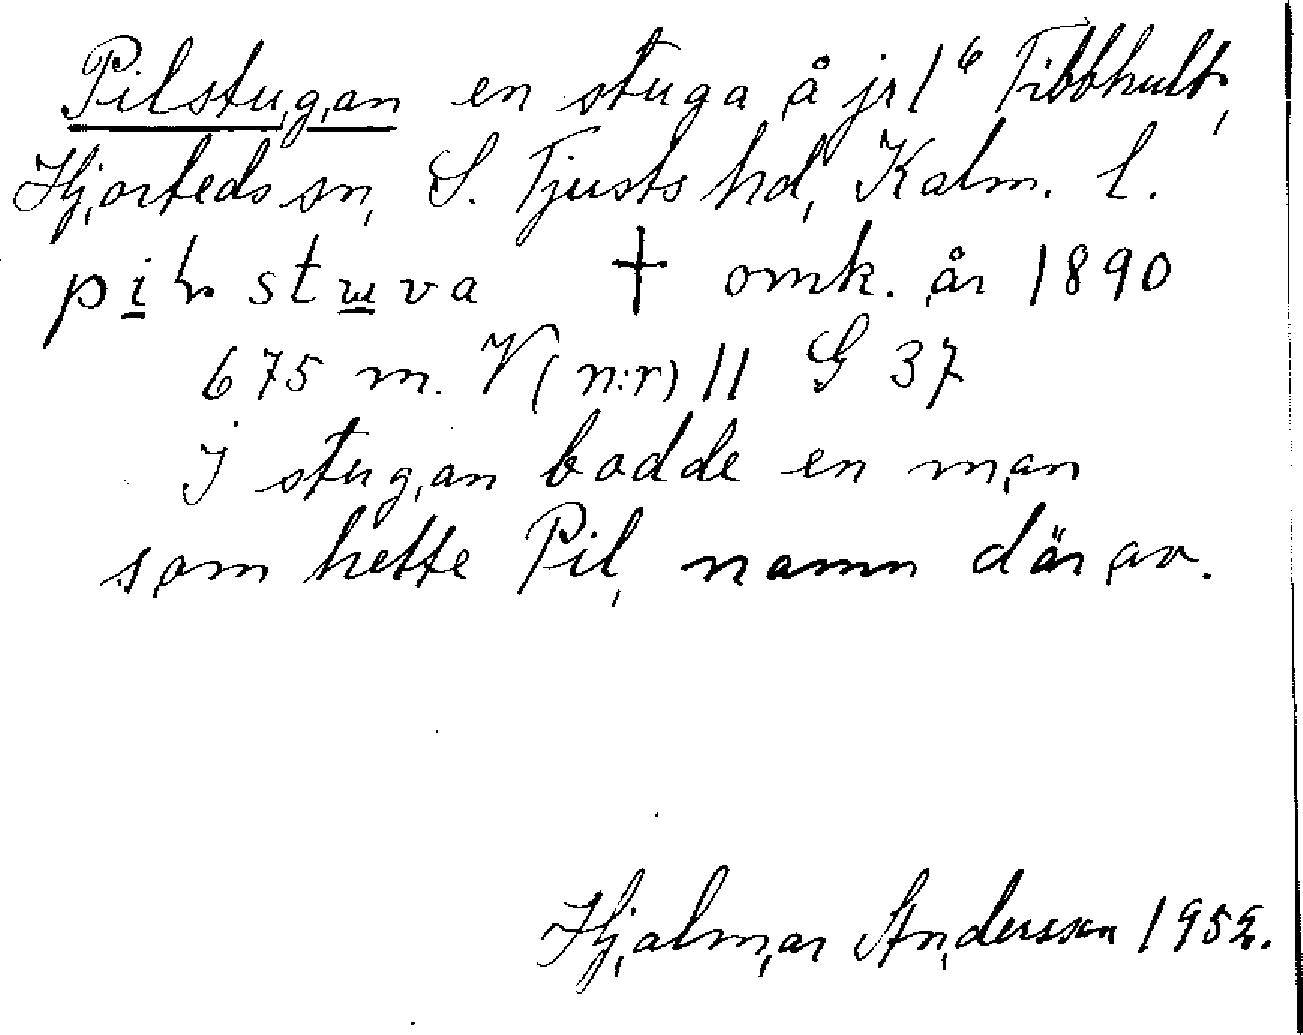 Pilstugan en stuga å jr 1⁶ Tibbhult,
Hjorteds sn, S. Tjusts hd, Kalm. l.
stɯva † omk. år 1890
675 m. V (n:r) 11 G 37
I stugan bodde en man
som hette Pil, namn därav.
Hjalmar Andersson 1952.